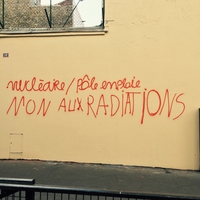 nucléaire / pôle emploie
NON AUX RADIATIONS